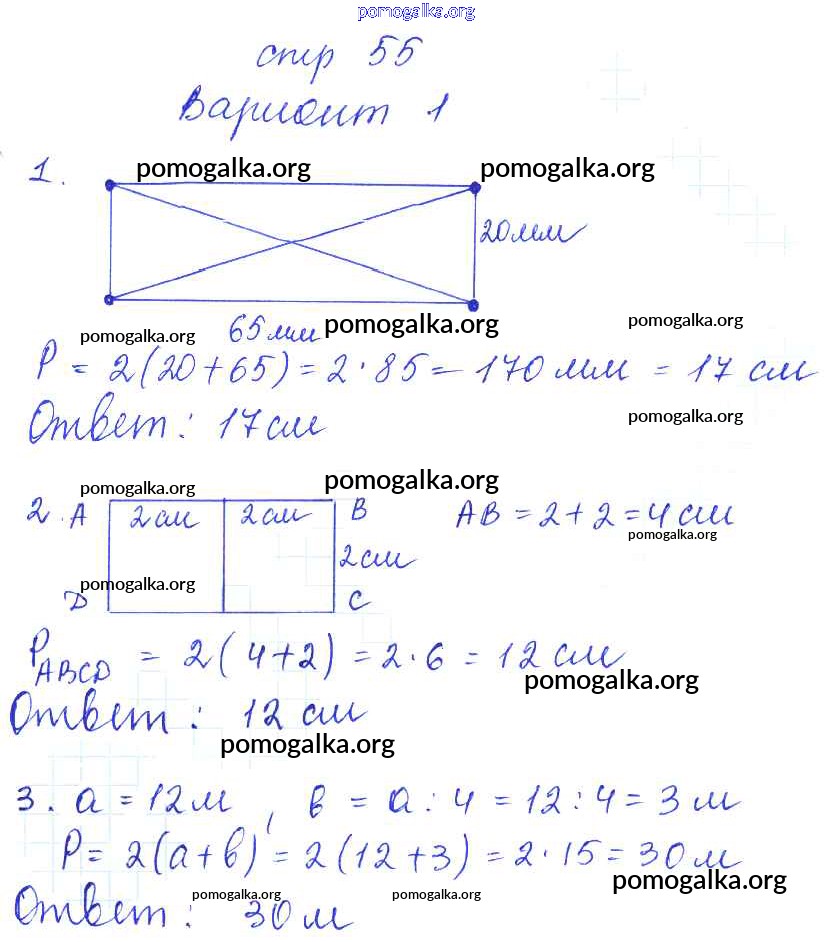 pomogalka.org
стр 55
Вариант 1
1. pomogalka.org pomogalka.org
20мм
pomogalka.org 65мм pomogalka.org pomogalka.org
P = 2(20+65) = 2·85 = 170 мм = 17 см
Ответ: 17см pomogalka.org
pomogalka.org pomogalka.org
2. A 2см 2см B AB = 2+2 = 4 см
pomogalka.org
2см
pomogalka.org
D C
P ABCD = 2(4+2) = 2·6 = 12 см
pomogalka.org
Ответ: 12 см
pomogalka.org
3. a = 12м, в = a : 4 = 12 : 4 = 3 м
P = 2(a+в) = 2(12+3) = 2·15 = 30м
pomogalka.org
pomogalka.org pomogalka.org
Ответ: 30м